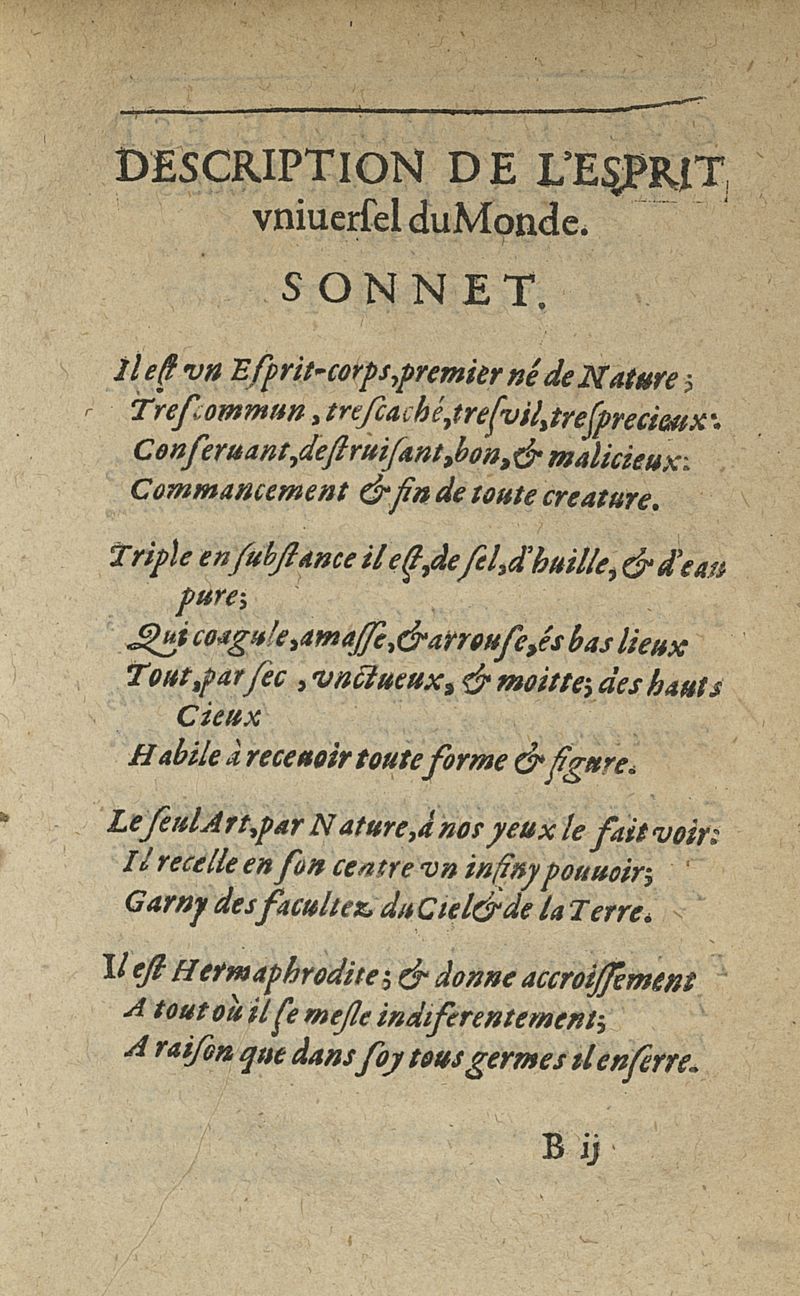 DESCRIPTION DE L'ESPRIT
vniuerſel du Monde.
SONNET.
Il eſt vn Eſprit-corps, premier né de Nature;
Treſcommun, treſcaché, treſvil, treſprecieux:
Conſeruant, deſtruiſant, bon, & malicieux:
Commancement & fin de toute creature.
Triple en ſubſtance il eſt, de ſel, d'huille, & d'eau
pure;
Qui coagule, amaſſe, & arrouſe, és bas lieux
Tout, par ſec, vnctueux, & moitte; des hauts
Cieux
Habile à receuoir toute forme & figure.
Le ſeul Art, par Nature, à nos yeux le fait voir:
Il recelle en ſon centre vn infiny pouuoir;
Garny des facultez du Ciel & de la Terre.
Il eſt Hermaphrodite; & donne accroiſſement
A tout où il ſe meſle indiferentement;
A raiſon que dans ſoy tous germes il enſerre.
B ij